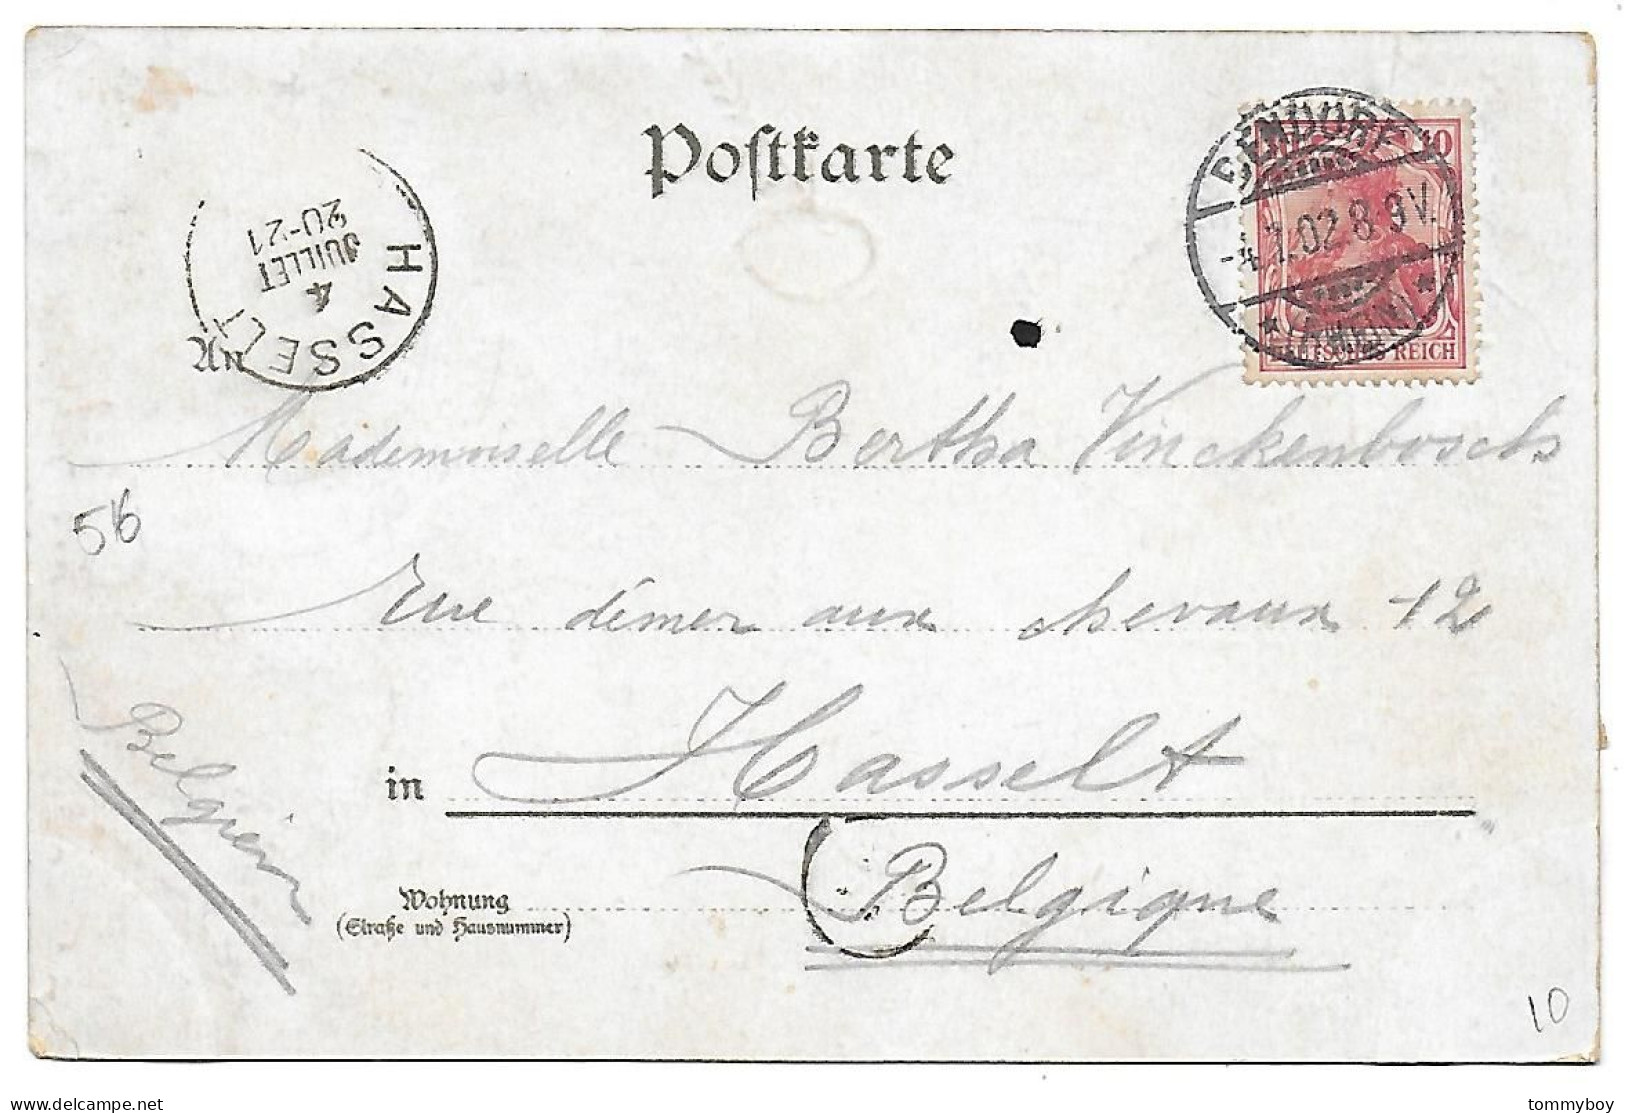 Postkarte
BENDORF
-4.7.02.8.9V.
* (RHEIN) *
10
DEUTSCHES REICH
HASSELT
4
JUILLET
20-21
An
Mademoiselle Bertha Vinckenbosch
56
Rue démer aux chevaux 12
in Hasselt
Belgien
Wohnung
(Straße und Hausnummer)
Belgique
10
tommyboy